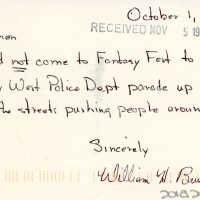 October 1,
RECEIVED NOV 5 19
men
d not come to Fantasy Fest to
y West Police Dept parade up
the streets pushing people around
Sincerely
William H.